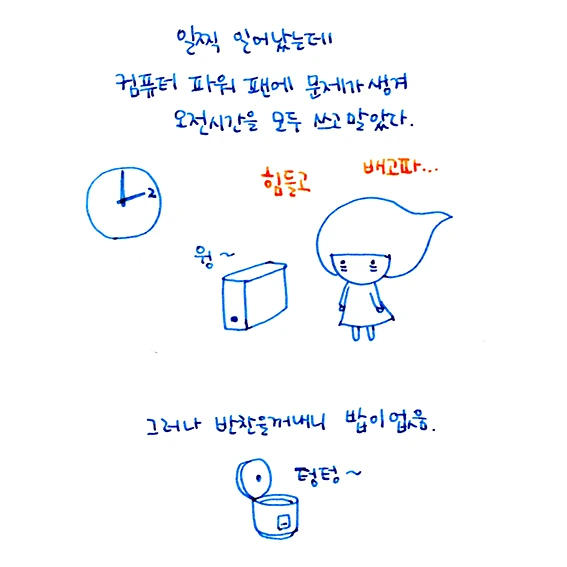 일찍 일어났는데
컴퓨터 파워 팬에 문제가 생겨
오전시간을 모두 쓰고 말았다.
힘들고
배고파...
2
윙~
그러나 반찬을꺼내니 밥이 없음.
텅텅~